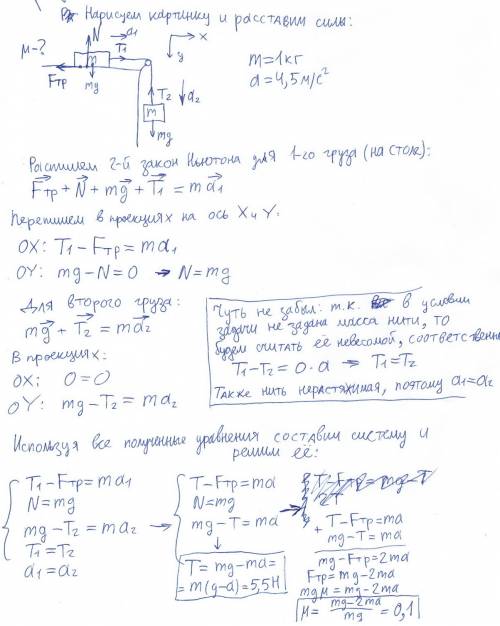 Нарисуем картинку и расставим силы:
μ-?
N
a₁
T₁
m
Fтр
mg
x
y
T₂
a₂
m
mg
m=1кг
a=4,5м/с²
Распишем 2-й закон Ньютона для 1-го груза (на столе):
Fтр + N + mg + T₁ = ma₁
Перепишем в проекциях на ось X и Y:
OX: T₁ - Fтр = ma₁
OY: mg - N = 0 → N = mg
Для второго груза:
mg + T₂ = ma₂
В проекциях:
OX: 0=0
OY: mg - T₂ = ma₂
Чуть не забыл: т.к. в условии
задачи не задана масса нити, то
будем считать её невесомой, соответственно
T₁ - T₂ = 0·a → T₁ = T₂
Также нить нерастяжимая, поэтому a₁=a₂
Используя все полученные уравнения составим систему и
решим её:
T₁ - Fтр = ma₁
N = mg
mg - T₂ = ma₂
T₁ = T₂
a₁ = a₂
→
T - Fтр = ma
N = mg
mg - T = ma
↓
T = mg - ma =
= m(g-a) = 5,5Н
→
+ T - Fтр = ma
mg - T = ma
mg - Fтр = 2ma
Fтр = mg - 2ma
mgμ = mg - 2ma
μ = (mg-2ma)/mg = 0,1